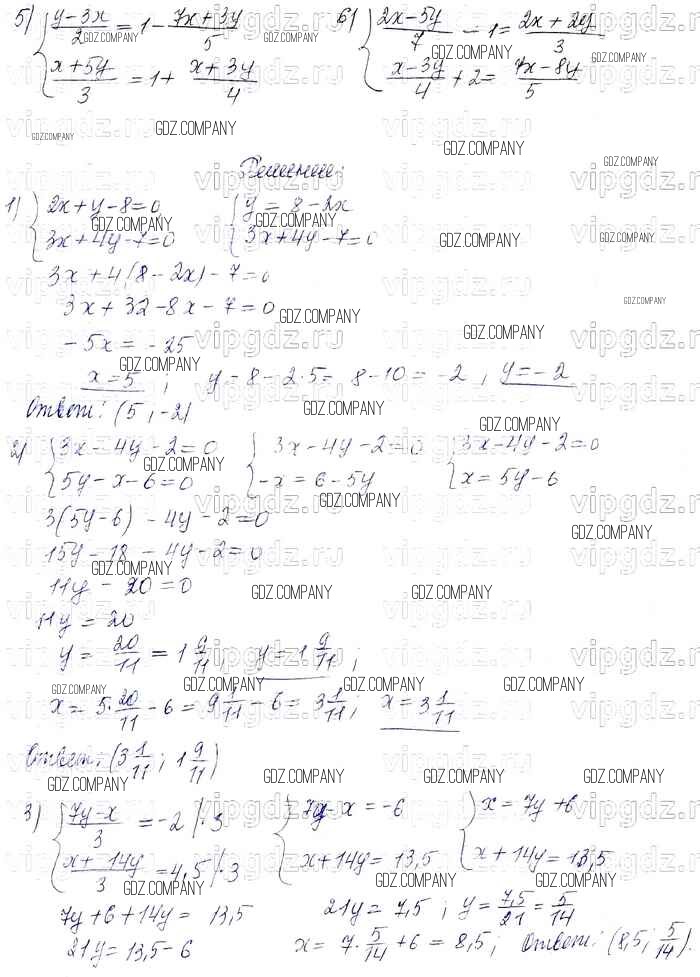 5) { (y-3x)/2 = 1 - (7x+3y)/5
(x+5y)/3 = 1 + (x+3y)/4
6) { (2x-5y)/7 - 1 = (2x+2y)/3
(x-3y)/4 + 2 = (7x-8y)/5
Решение:
1) { 2x+y-8=0 { y = 8-2x
3x+4y-7=0 3x+4y-7=0
3x+4(8-2x)-7=0
3x+32-8x-7=0
-5x = -25
x=5 ; y=8-2·5= 8-10= -2 , y=-2
Ответ: (5 ; -2)
2) { 3x-4y-2=0 { 3x-4y-2=0 { 3x-4y-2=0
5y-x-6=0 -x = 6-5y x = 5y-6
3(5y-6) -4y-2=0
15y-18-4y-2=0
11y-20=0
11y = 20
y = 20/11 = 1 9/11 , y = 1 9/11 ;
x = 5·20/11 - 6 = 9 1/11 - 6 = 3 1/11 ; x = 3 1/11
Ответ: (3 1/11 ; 1 9/11)
3) { (7y-x)/3 = -2 |·3 { 7y-x = -6 { x = 7y+6
(x+14y)/3 = 4,5 |·3 x+14y = 13,5 x+14y = 13,5
7y+6+14y = 13,5
21y = 13,5-6
21y = 7,5 ; y = 7,5/21 = 5/14
x = 7·5/14 + 6 = 8,5 ; Ответ: (8,5; 5/14).
GDZ.COMPANY
vipgdz.ru